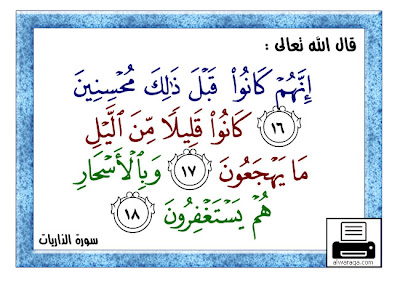 قال الله تعالى :
إِنَّهُمْ كَانُوا۟ قَبْلَ ذَٰلِكَ مُحْسِنِينَ
١٦ كَانُوا۟ قَلِيلًا مِّنَ ٱلَّيْلِ
مَا يَهْجَعُونَ ١٧ وَبِٱلْأَسْحَارِ
هُمْ يَسْتَغْفِرُونَ ١٨
سورة الذاريات
alwaraqa.com